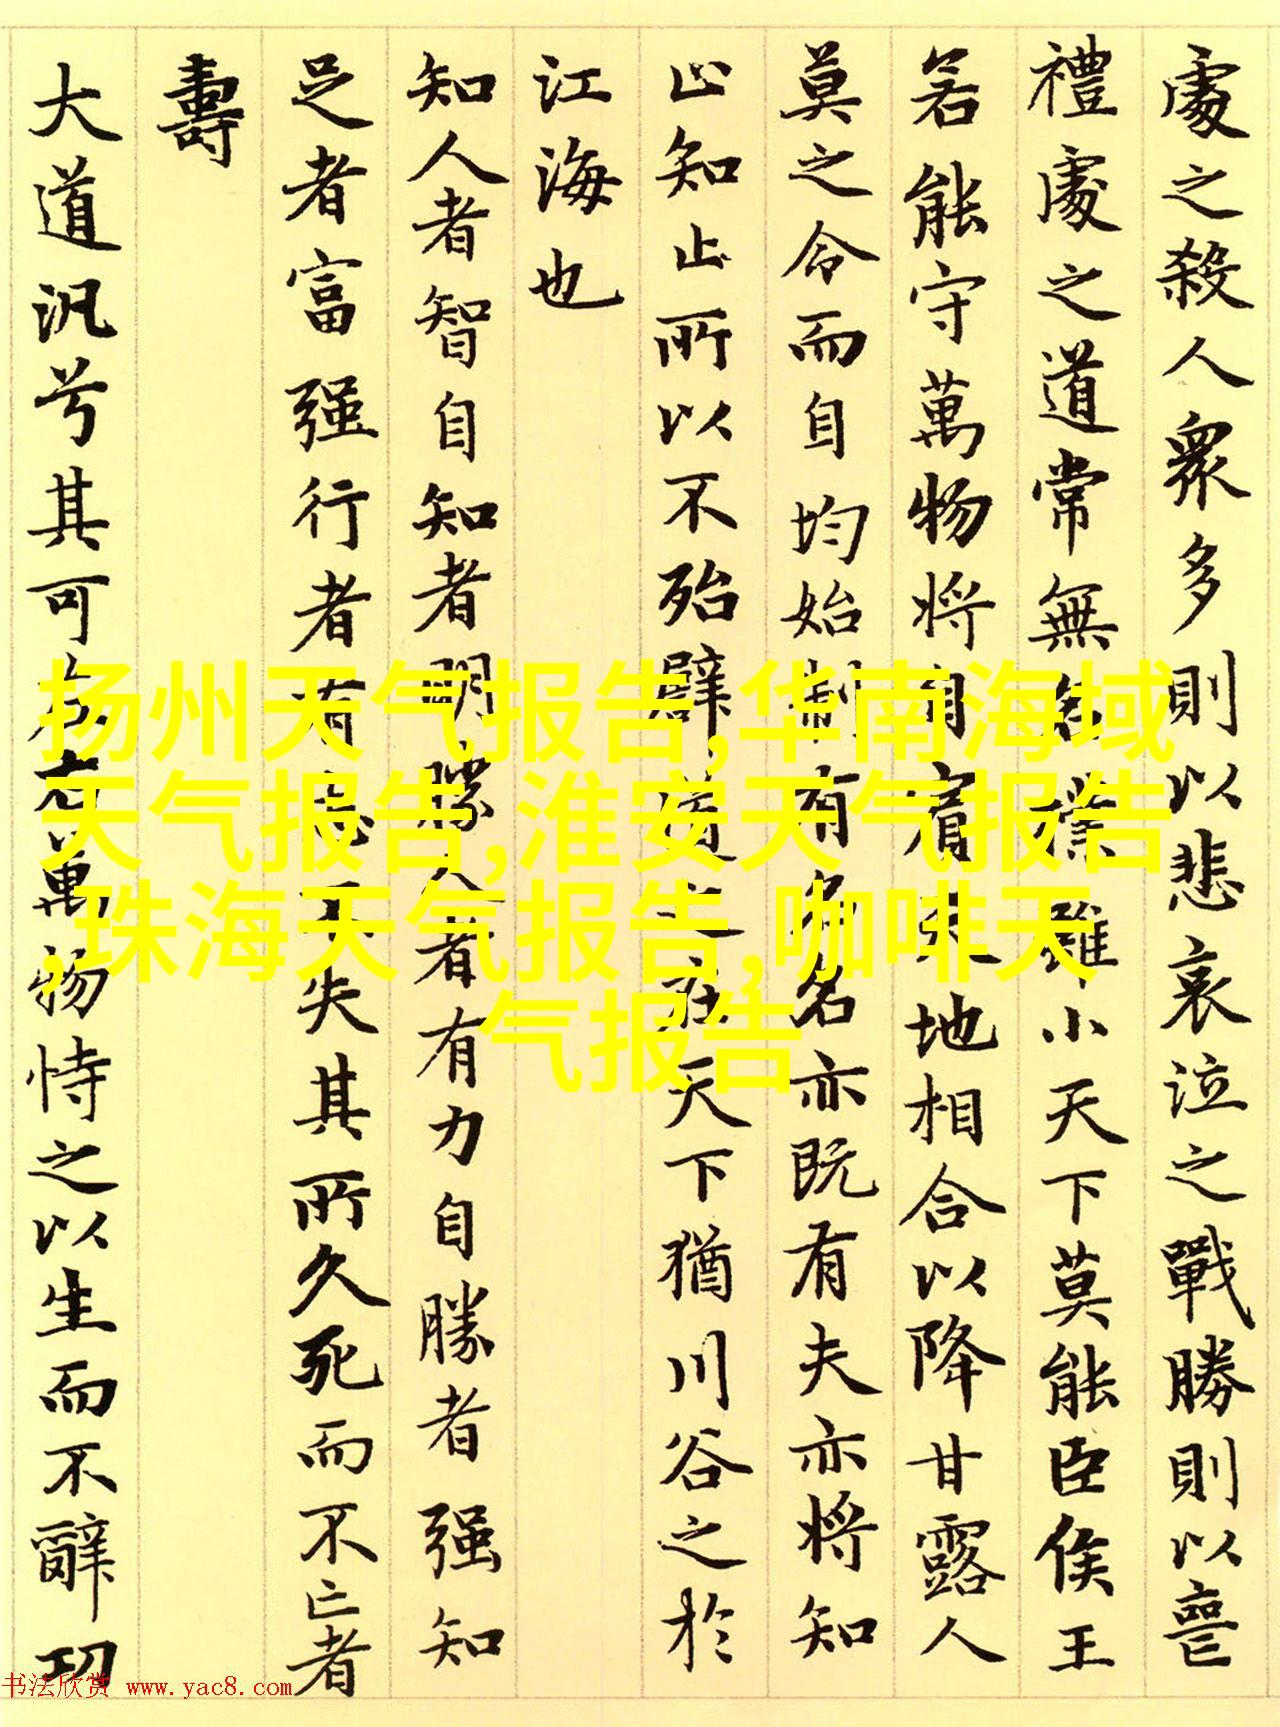 處之殺人衆多則以悲哀泣之戰勝則以喪
禮處之道常無名樸雖小天下莫能臣侯王
若能守萬物將自賓天地相合以降甘露人
莫之令而自均始制有名名亦既有夫亦将知
止知止所以不殆譬道之在天下猶川谷之於
江海也
知人者智自知者明勝人者有力自勝者强知
足者富强行者有志不失其所久死而不亡者
壽
大道汎兮其可左右萬物恃之以生而不辭功
扬州天气报告,华南海域
天气报告,淮安天气报告
,珠海天气报告,咖啡天
气报告
书法欣赏 www.yac8.com